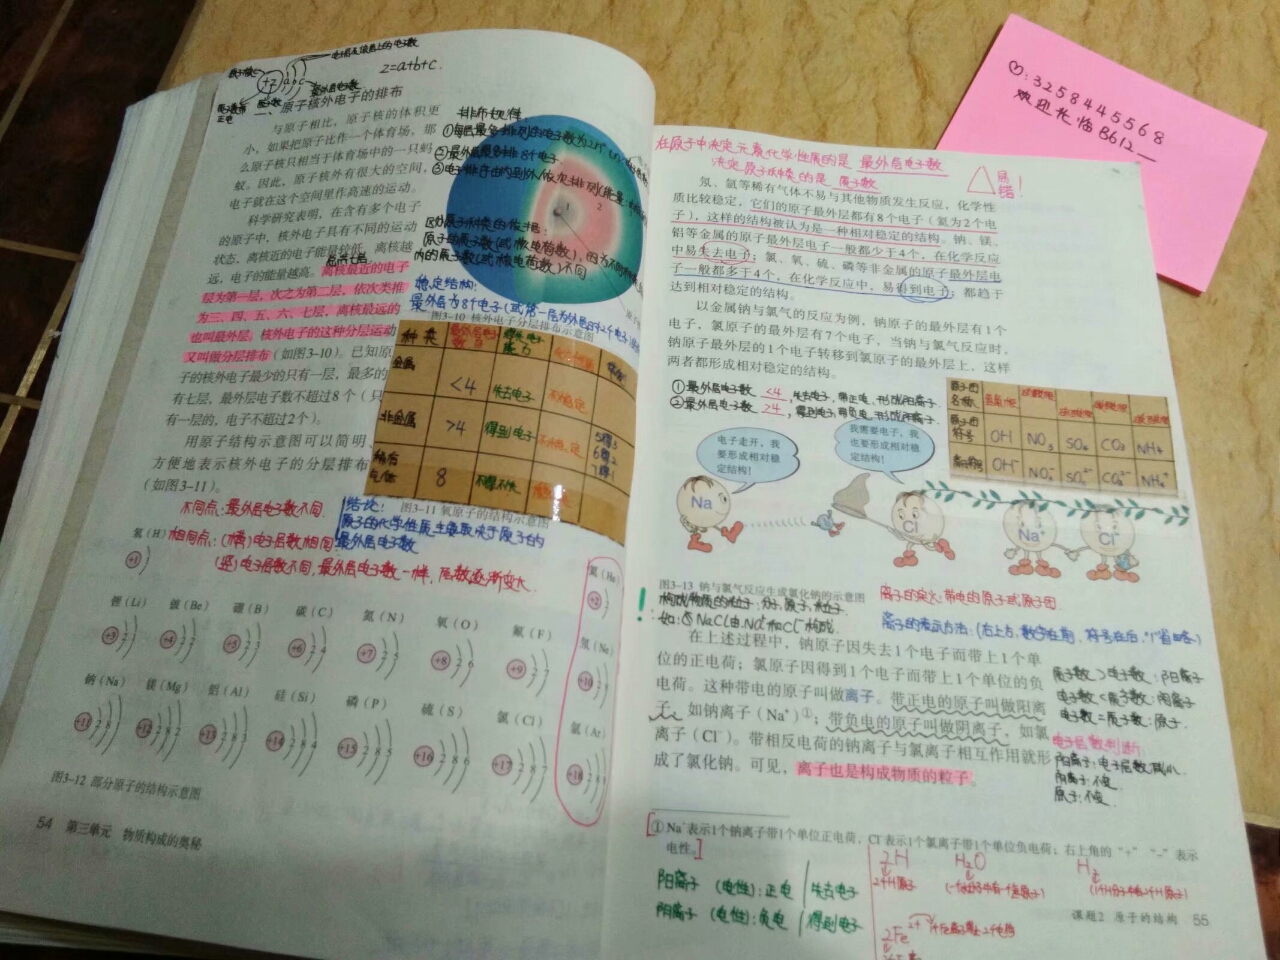 电子层及该层上的电子数
z=a+b+c.
最外层电子数
一、原子核外电子的排布
与原子相比，原子核的体积更
小，如果把原子比作一个体育场，那
么原子核只相当于体育场中的一只蚂
蚁。因此，原子核外有很大的空间，
电子就在这个空间里作高速的运动。
科学研究表明，在含有多个电子
的原子中，核外电子具有不同的运动
状态，离核近的电子能量较低，离核越
远，电子的能量越高。离核最近的电子
层为第一层，次之为第二层，依次类推
为三、四、五、六、七层，离核最远的
也叫最外层。核外电子的这种分层运动
又叫做分层排布（如图3-10）。已知原
子的核外电子最少的只有一层，最多的
有七层，最外层电子数不超过8个（只
有一层的，电子不超过2个）。
用原子结构示意图可以简明、
方便地表示核外电子的分层排布
（如图3-11）。
排布规律
②最外层最多排8个电子
稳定结构：
图3-10 核外电子分层排布示意图
种类
金属
<4
失去电子
不稳定
非金属
>4
得到电子
不稳定
稀有
气体
8
图3-11 氧原子的结构示意图
不同点：最外层电子数不同
结论：
原子的化学性质主要取决于原子的
最外层电子数
相同点：（横）电子层数相同
（竖）电子层数不同，最外层电子数一样，层数逐渐变大
氢（H） 氦（He）
+1 +2
锂（Li） 铍（Be） 硼（B） 碳（C） 氮（N） 氧（O） 氟（F） 氖（Ne）
+3 2 1 +4 2 2 +5 2 3 +6 2 4 +7 2 5 +8 2 6 +9 2 7 +10 2 8
钠（Na） 镁（Mg） 铝（Al） 硅（Si） 磷（P） 硫（S） 氯（Cl） 氩（Ar）
+11 2 8 1 +12 2 8 2 +13 2 8 3 +14 2 8 4 +15 2 8 5 +16 2 8 6 +17 2 8 7 +18 2 8 8
图3-12 部分原子的结构示意图
54 第三单元 物质构成的奥秘
3258445568
欢迎光临B612
在原子中决定元素化学性质的是 最外层电子数
决定原子种类的是 质子数
易错！
氖、氩等稀有气体不易与其他物质发生反应，化学性
质比较稳定，它们的原子最外层都有8个电子（氦为2个电
子），这样的结构被认为是一种相对稳定的结构。钠、镁、
铝等金属的原子最外层电子一般都少于4个，在化学反应
中易失去电子；氯、氧、硫、磷等非金属的原子最外层电
子一般都多于4个，在化学反应中，易得到电子；都趋于
达到相对稳定的结构。
以金属钠与氯气的反应为例，钠原子的最外层有1个
电子，氯原子的最外层有7个电子，当钠与氯气反应时，
钠原子最外层的1个电子转移到氯原子的最外层上，这样
两者都形成相对稳定的结构。
①最外层电子数 <4 失去电子，带正电，形成阳离子.
②最外层电子数 >4，得到电子，带负电，形成阴离子.
原子团
名称
原子团
符号 OH NO₃ SO₄ CO₃ NH₄
OH⁻ NO₃⁻ SO₄²⁻ CO₃²⁻ NH₄⁺
电子走开，我
要形成相对稳
定结构！
我需要电子，我
也要形成相对稳
定结构！
Na
Cl
Na⁺
Cl⁻
图3-13 钠与氯气反应生成氯化钠的示意图
离子的定义：带电的原子或原子团.
构成物质的粒子：分子，原子，离子.
离子的表示方法：（右上方，数字在前，符号在后，“1”省略）
在上述过程中，钠原子因失去1个电子而带上1个单
位的正电荷；氯原子因得到1个电子而带上1个单位的负
电荷。这种带电的原子叫做离子。带正电的原子叫做阳离
子，如钠离子（Na⁺）①；带负电的原子叫做阴离子，如氯
离子（Cl⁻）。带相反电荷的钠离子与氯离子相互作用就形
成了氯化钠。可见，离子也是构成物质的粒子。
质子数>电子数：阳离子
电子数=质子数：原子.
电子层数判断：
阳离子：电子层数减小
阴离子：不变
原子：不变
① Na⁺表示1个钠离子带1个单位正电荷，Cl⁻表示1个氯离子带1个单位负电荷；右上角的“+”“-”表示
电性。
阳离子 （电性）：正电 失去电子
阴离子 （电性）：负电 得到电子
2H H₂O H₂
2个H原子
2Fe²⁺
课题2 原子的结构 55